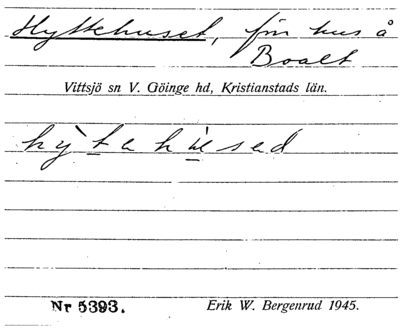 Hyttehuset, fm hus å
Boalt
Vittsjö sn V. Göinge hd, Kristianstads län.
hỳtahùsad
Nr 5393.
Erik W. Bergenrud 1945.